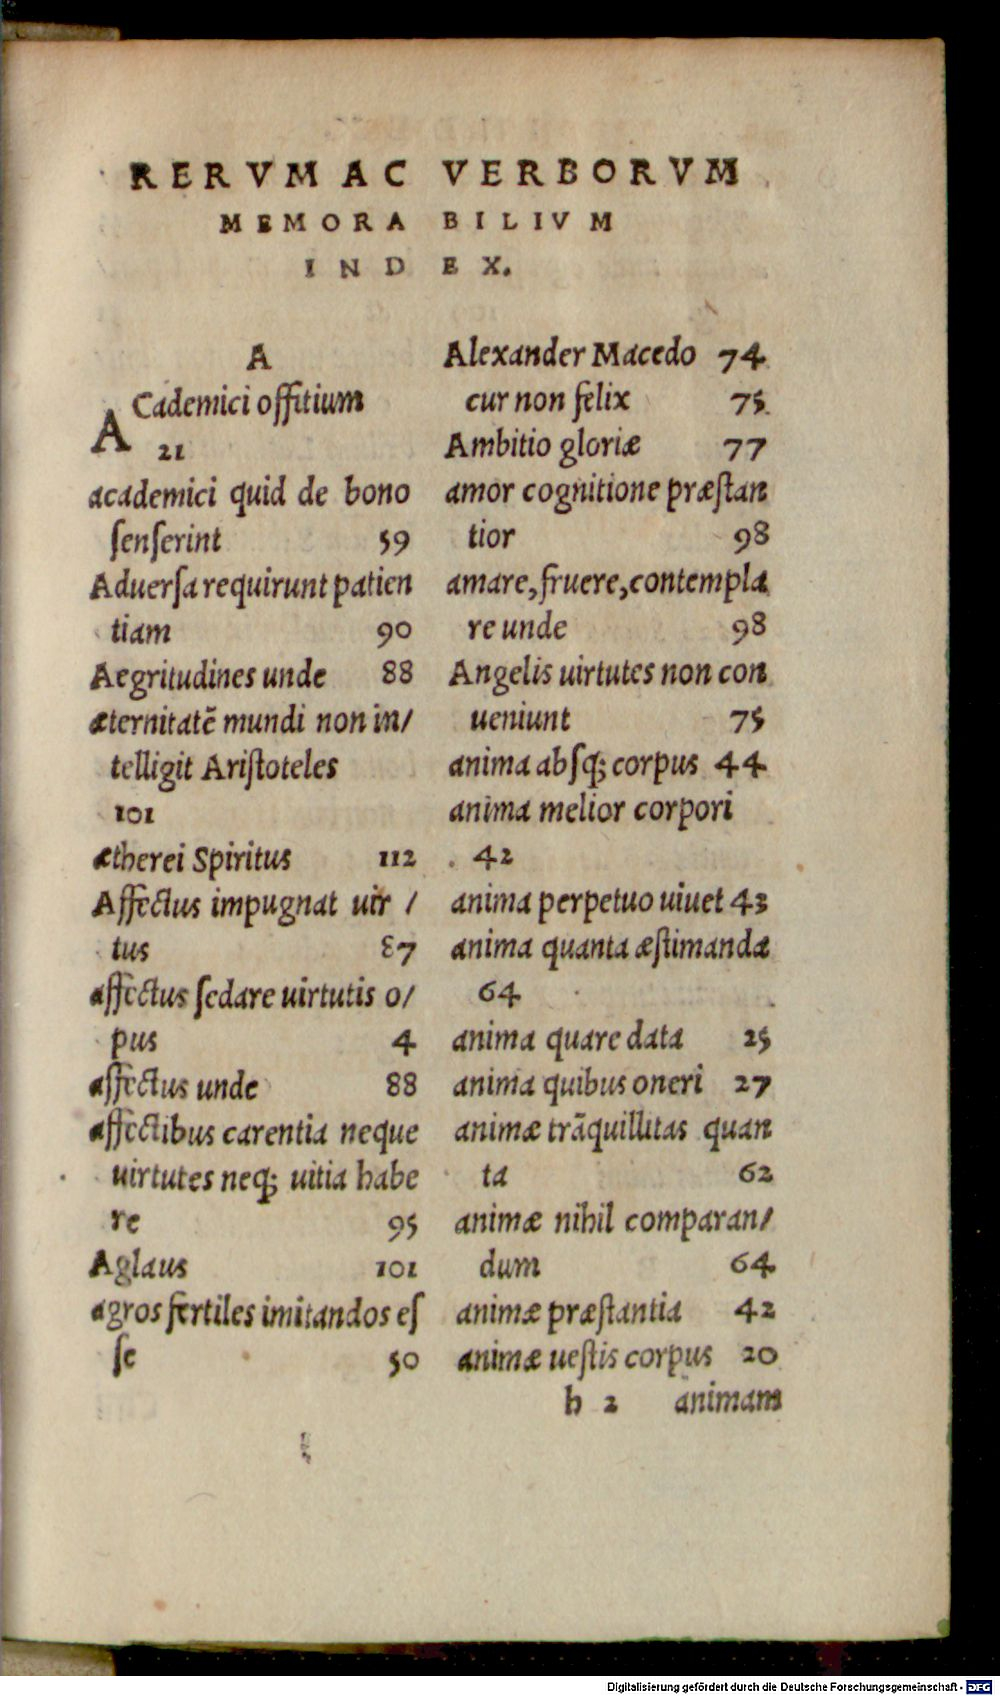 RERVM AC VERBORVM
MEMORA BILIVM
INDEX.
A
ACademici offitium
21
academici quid de bono
ſenſerint 59
Aduerſa requirunt patien
tiam 90
Aegritudines unde 88
æternitatē mundi non in/
telligit Ariſtoteles
101
ætherei Spiritus 112
Affectus impugnat uir /
tus 87
affectus ſedare uirtutis o/
pus 4
affectus unde 88
affectibus carentia neque
uirtutes neq; uitia habe
re 95
Aglaus 101
agros fertiles imitandos eſ
ſe 50
Alexander Macedo 74
cur non felix 75
Ambitio gloriæ 77
amor cognitione præſtan
tior 98
amare, fruere, contempla
re unde 98
Angelis uirtutes non con
ueniunt 75
anima abſq; corpus 44
anima melior corpori
42
anima perpetuo uiuet 43
anima quanta æſtimanda
64
anima quare data 25
anima quibus oneri 27
animæ trāquillitas quan
ta 62
animæ nihil comparan/
dum 64
animæ præſtantia 42
animæ ueſtis corpus 20
h 2 animam
Digitalisierung gefördert durch die Deutsche Forschungsgemeinschaft - DFG